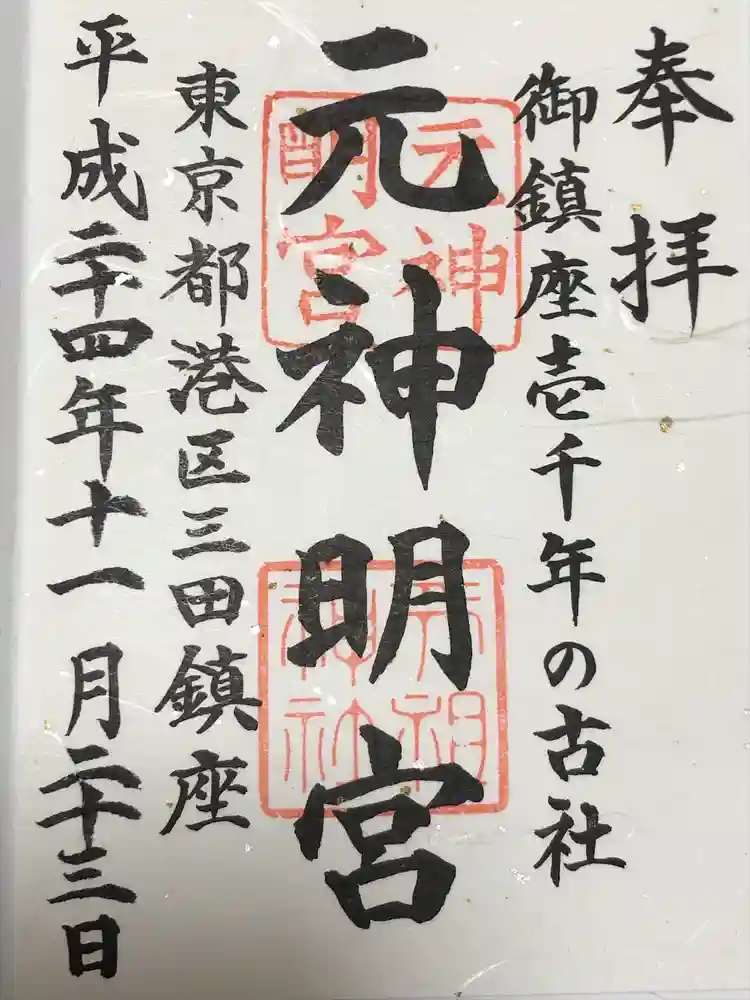 奉拝
御鎮座壱千年の古社
元神明宮
元神
明宮
天祖
神社
東京都港区三田鎮座
平成二十四年十一月二十三日